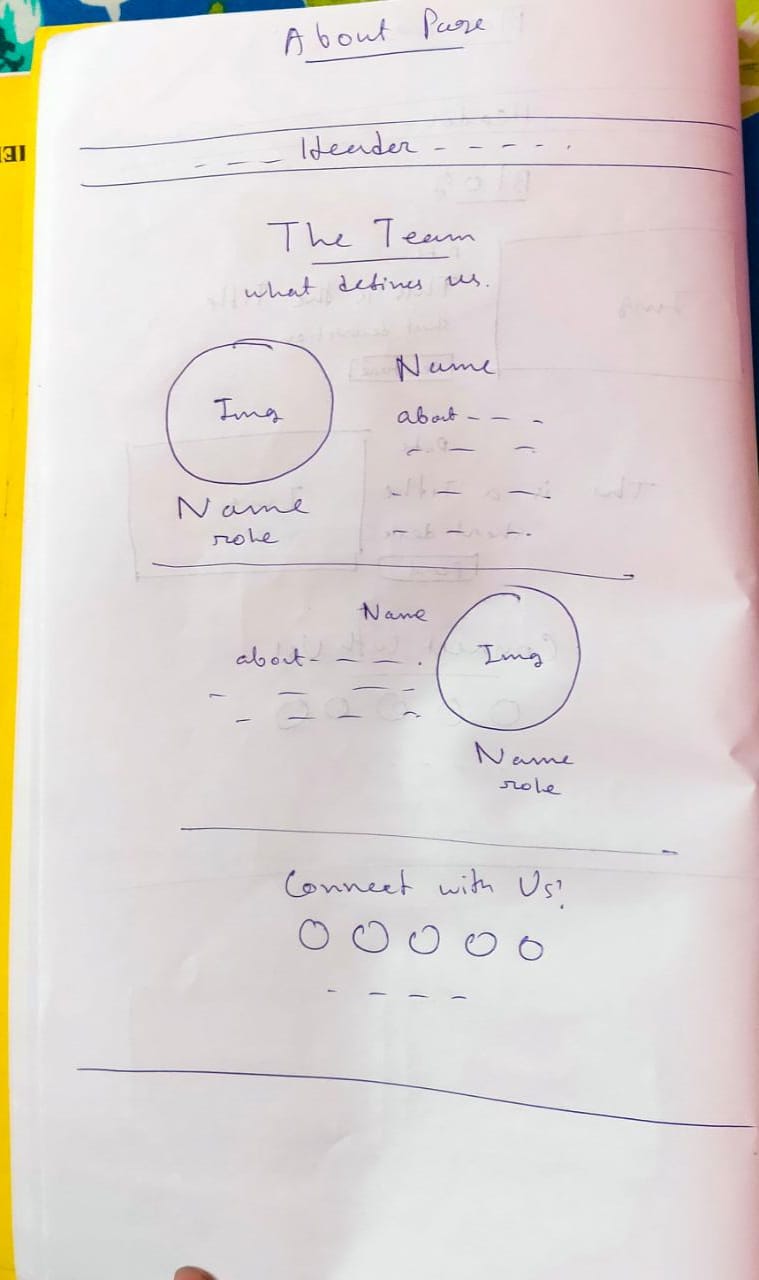 About Page
Header
The Team
what defines us.
Img
Name
role
Name
about
Name
about
Img
Name
role
Connect with Us!